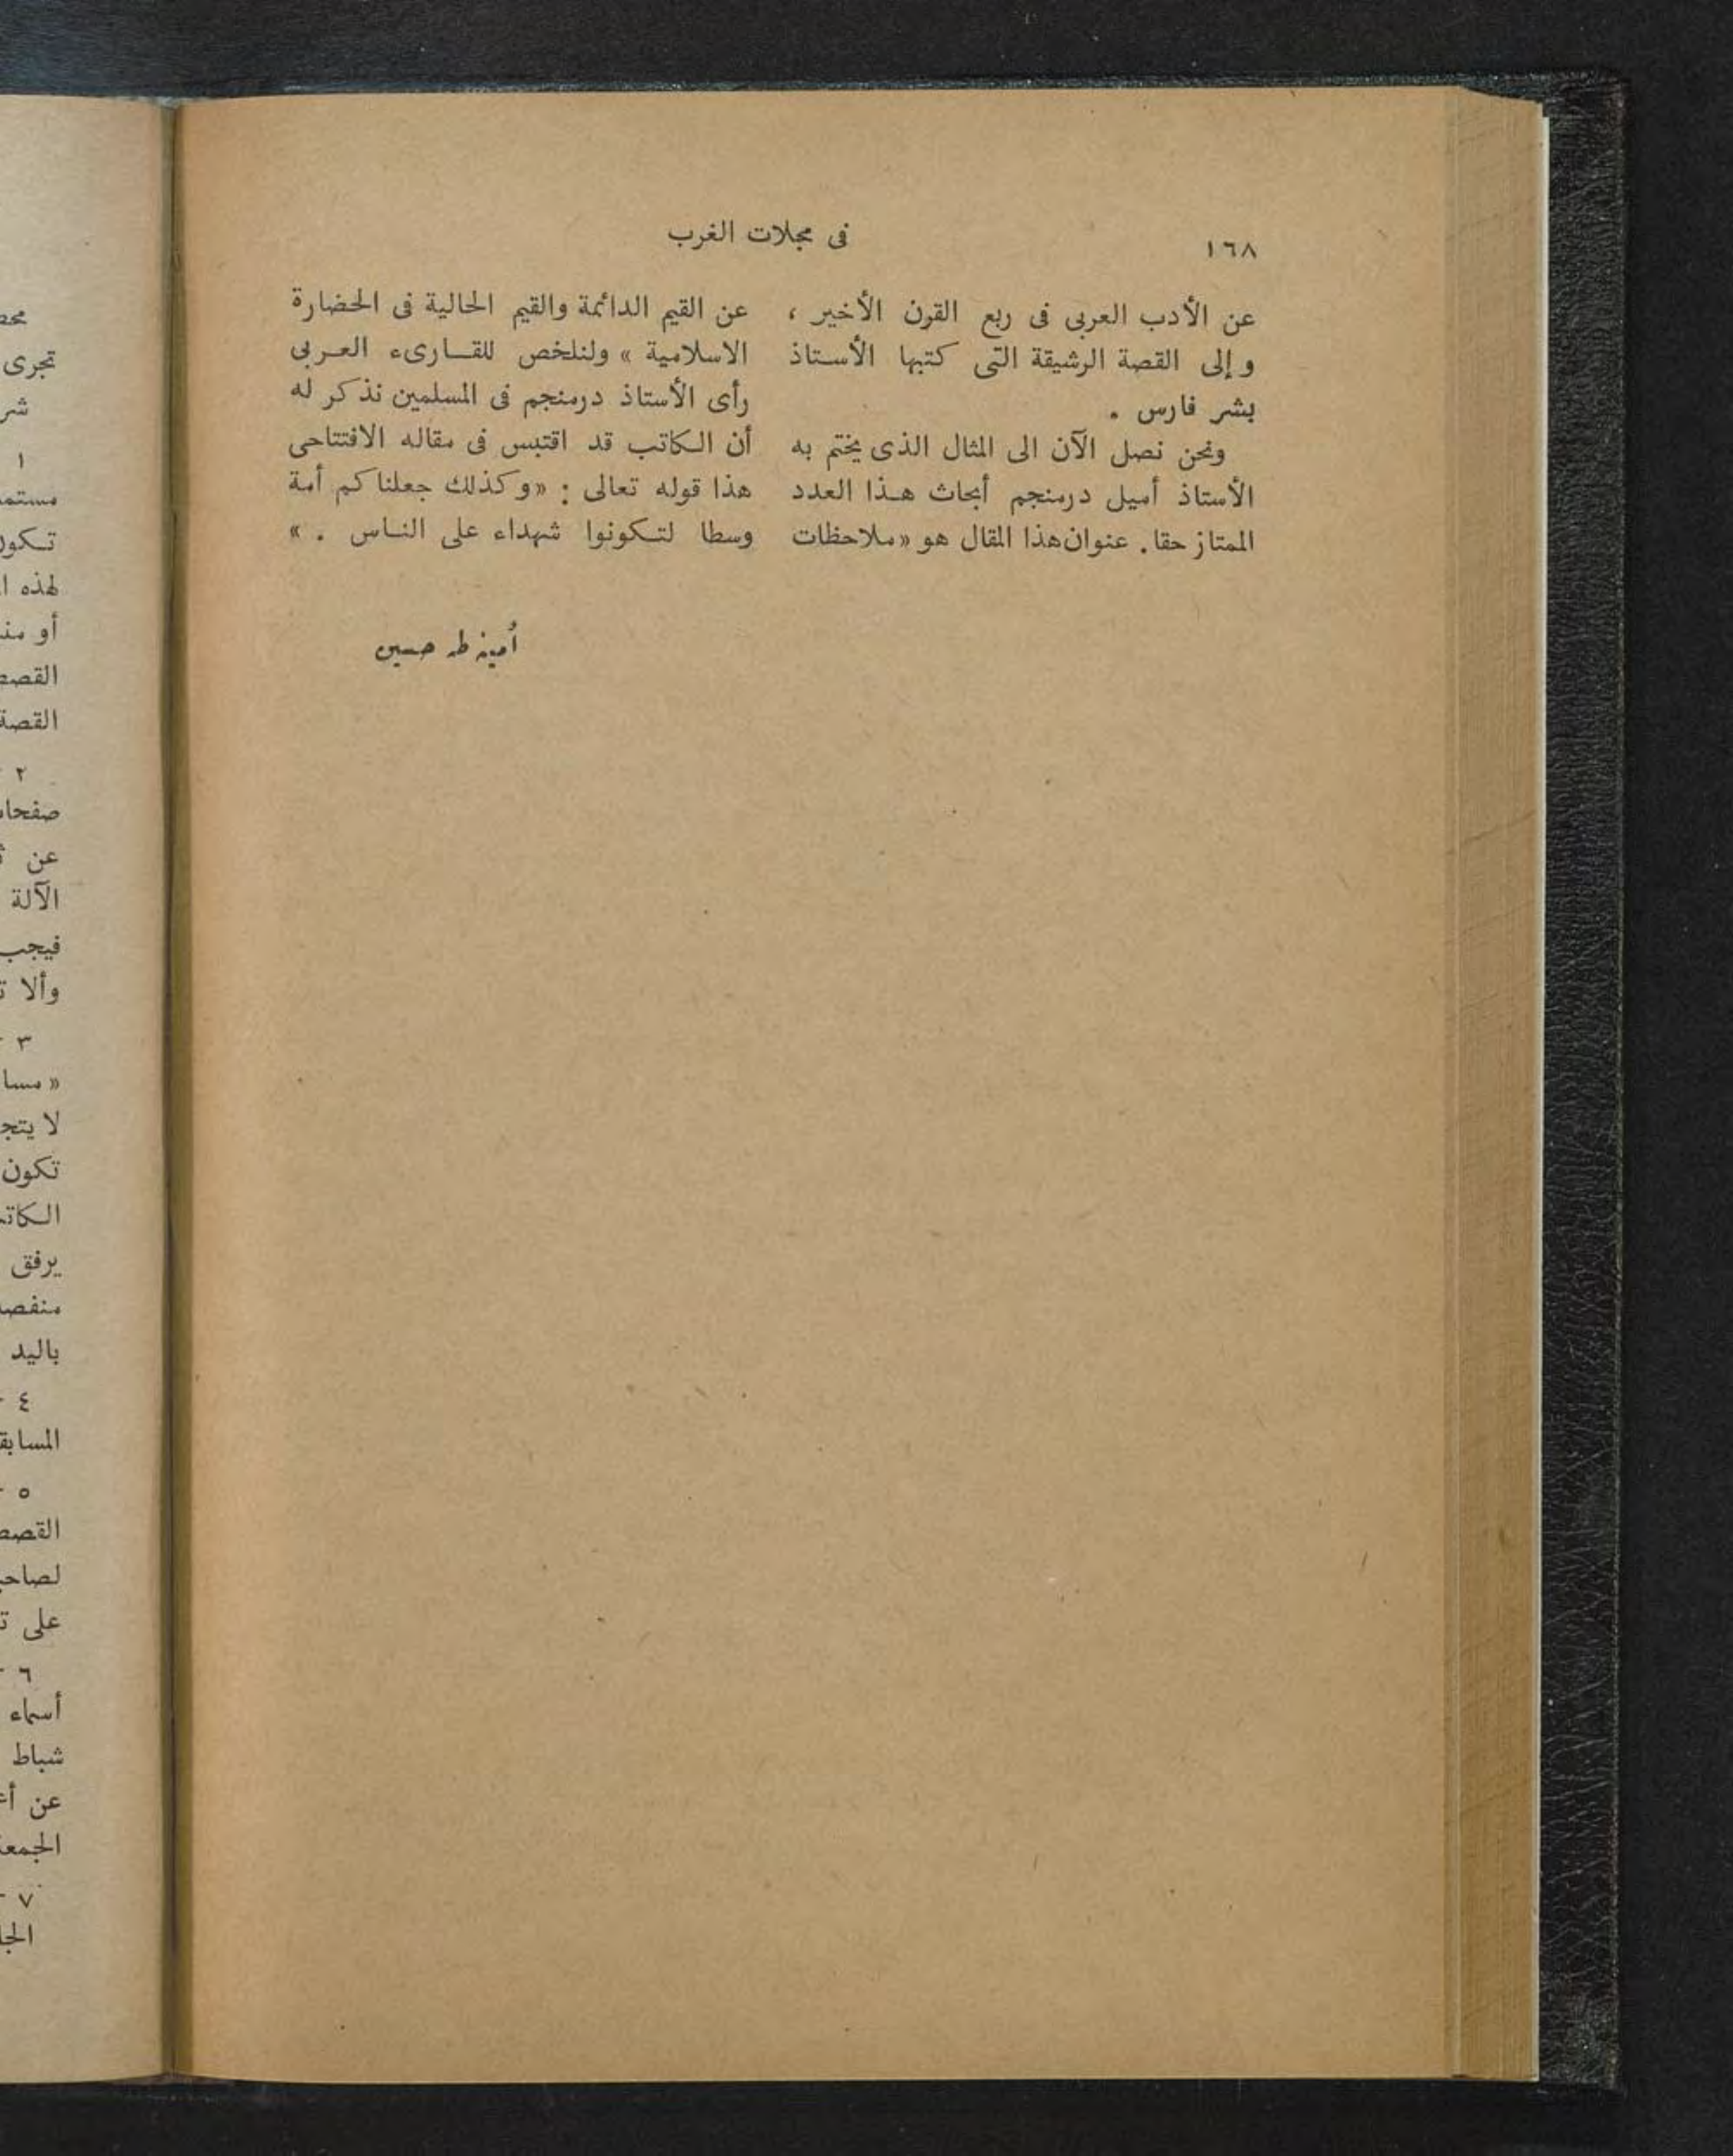 ١٦٨
فى مجلات الغرب
عن الأدب العربى فى ربع القرن الأخير ،
وإلى القصة الرشيقة التى كتبها الأستاذ
بشر فارس .
ونحن نصل الآن الى المثال الذى يختم به
الأستاذ أميل درمنجم أبحاث هذا العدد
الممتاز حقا . عنوان هذا المقال هو «ملاحظات
عن القيم الدائمة والقيم الحالية فى الحضارة
الاسلامية » ولنلخص للقارىء العربى
رأى الأستاذ درمنجم فى المسلمين نذكر له
أن الكاتب قد اقتبس فى مقاله الافتتاحى
هذا قوله تعالى : «وكذلك جعلناكم أمة
وسطا لتكونوا شهداء على الناس . »
أمينة طه حسين
تجرى
١
لهذه
أو
القصة
٢
عن
الآلة
فيجب
وألا
٣
لا
تكون
يرفق
باليد
٤
٥
على
٦
أسماء
شباط
عن
٧